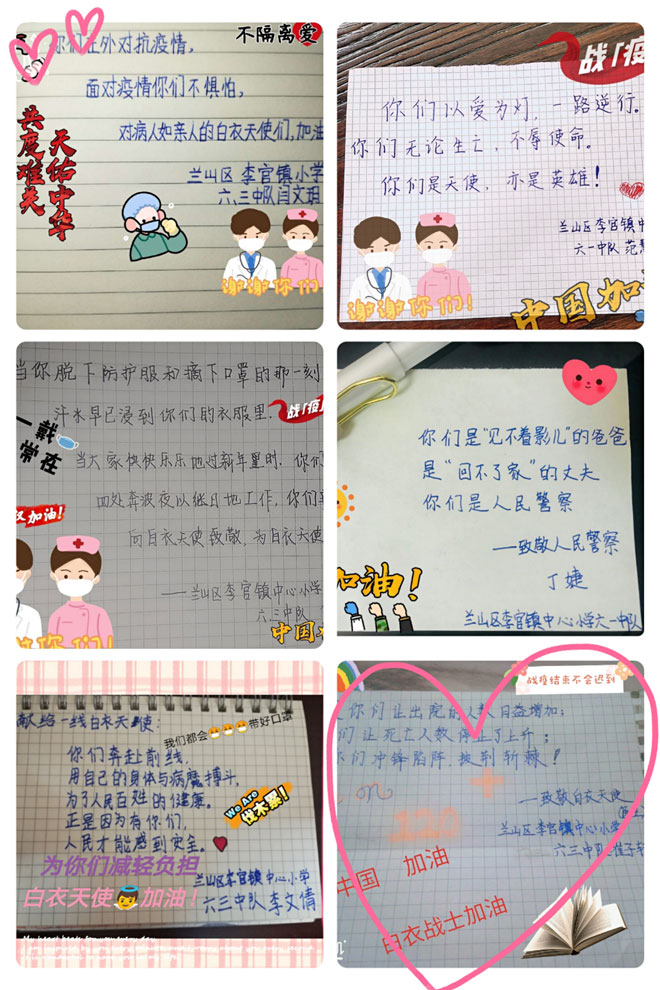 不隔离爱
你们在外对抗疫情,
面对疫情你们不惧怕,
对病人如亲人的白衣天使们,加油
兰山区李官镇小学
六、三中队闫文玥
天佑中华
共度难关
谢谢你们!
战「疫
你们以爱为灯,一路逆行。
你们无论生亡,不辱使命。
你们是天使,亦是英雄!
兰山区李官镇中
六一中队 范
谢谢你们!
中国加
当你脱下防护服和摘下口罩的那一刻
汗水早已浸到你们的衣服里.
战「疫
一戴
常在
当大家快快乐乐地过新年里时.你们
四处奔波夜以继日地工作,你们
加油!
向白衣天使致敬,为白衣天使
——兰山区李官镇中心小学
六三中队
谢谢你们!
中国加
你们是“见不着影儿”的爸爸
是“回不了家”的丈夫
你们是人民警察
——致敬人民警察
丁婕
加油!
兰山区李官镇中心小学六一中队
献给一线白衣天使:
我们都会😷😷😷带好口罩
你们奔赴前线,
用自己的身体与病魔搏斗。
为了人民百姓的健康。
正是因为有你们,
人民才能感到安全。
We Are
伐木累!
为你们减轻负担
白衣天使👼加油!
兰山区李官镇中心小学
六三中队李文倩
战疫结束不会迟到
你们让出院的人数日益增加;
们让死亡人数停止了上升;
们冲锋陷阵,披荆斩棘!
120
——致敬白衣天使
兰山区李官镇中心小学
六三中队
中国 加油
白衣战士加油